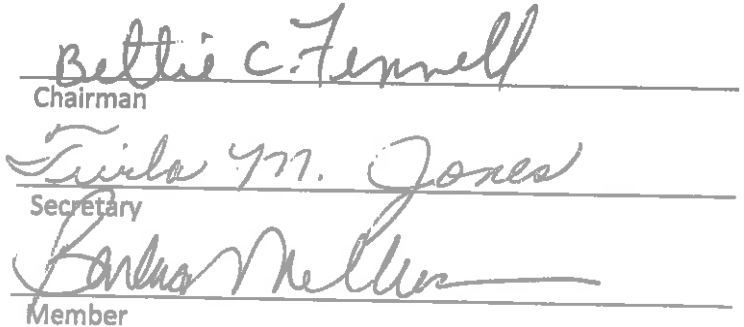 Bettie C. Fennell
Chairman
Twila M. Jones
Secretary
Barbara
Member